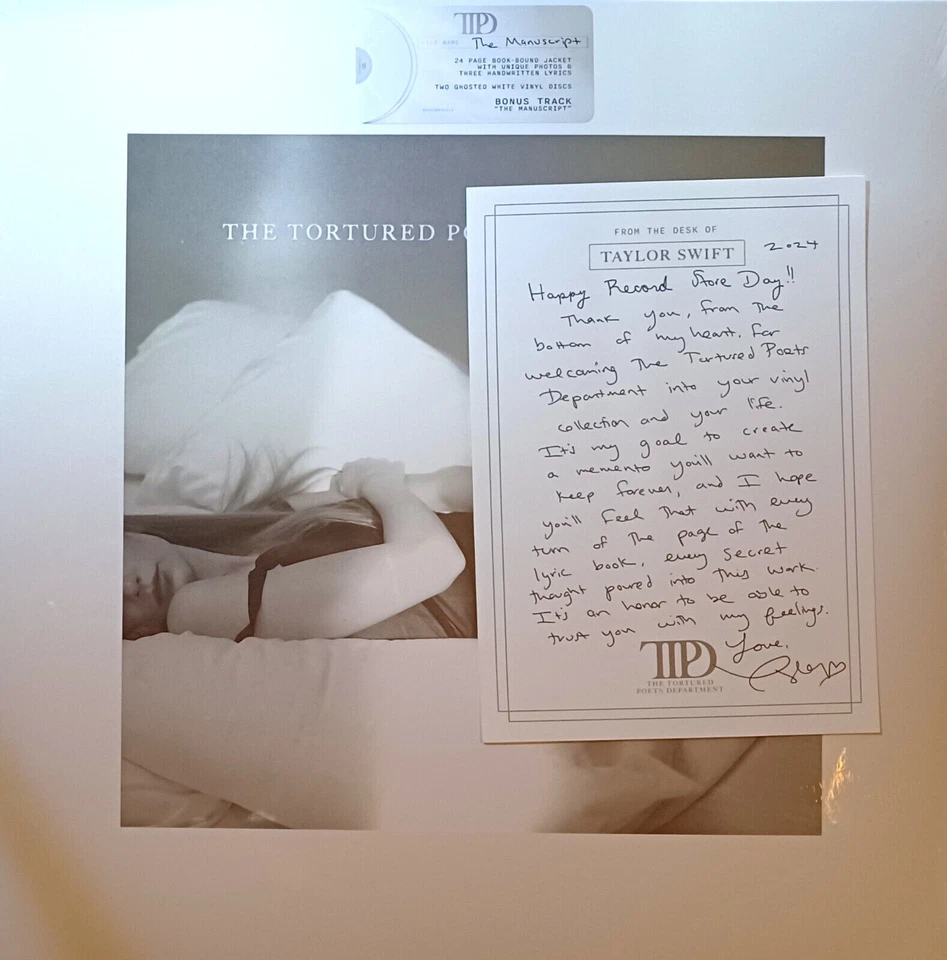 TTPD
The Manuscript
24 PAGE BOOK-BOUND JACKET
WITH UNIQUE PHOTOS &
THREE HANDWRITTEN LYRICS
TWO GHOSTED WHITE VINYL DISCS
BONUS TRACK
"THE MANUSCRIPT"
THE TORTURED PO
FROM THE DESK OF
TAYLOR SWIFT
2024
Happy Record Store Day!!
Thank you, from the
bottom of my heart, for
welcoming The Tortured Poets
Department into your vinyl
collection and your life.
It's my goal to create
a memento you'll want to
keep forever, and I hope
you'll feel that with every
turn of the page of the
lyric book, every secret
thought poured into this work.
It's an honor to be able to
trust you with my feelings.
Love,
TTPD
THE TORTURED
POETS DEPARTMENT